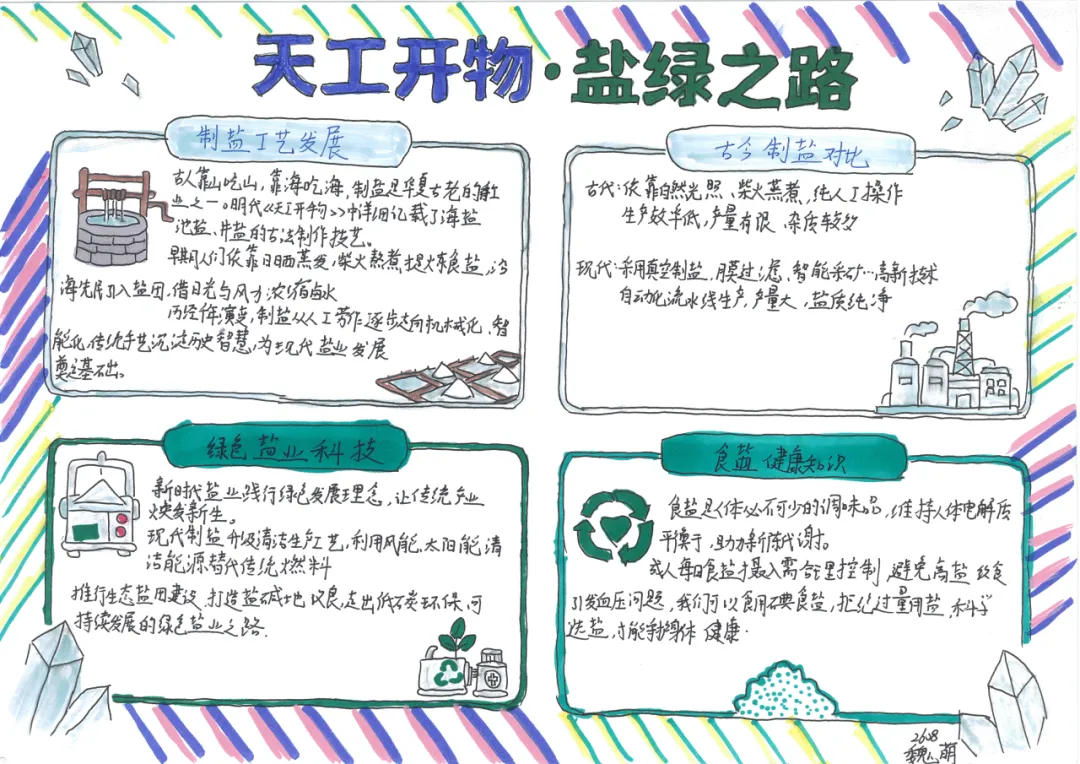 天工开物·盐绿之路
制盐工艺发展
古人靠山吃山,靠海吃海,制盐是华夏古老的
业之一。明代《天工开物》中详细记载了海盐
池盐、井盐的古法制作技艺。
早期人们依靠日晒蒸发,柴火熬煮提炼食盐,沿
海先民引入盐田,借日光与风力浓缩卤水
历经千年演变,制盐从人工劳作逐步走向机械化、智
能化,传统手艺沉淀历史智慧,为现代盐业发展
奠定基础。
古今制盐对比
古代:依靠自然光照、柴火蒸煮,纯人工操作
生产效率低,产量有限、杂质较多
现代:采用真空制盐,膜过滤、智能采矿…高新技术
自动化流水线生产,产量大,盐质纯净
绿色盐业科技
新时代盐业践行绿色发展理念,让传统产业
焕发新生。
现代制盐升级清洁生产工艺,利用风能、太阳能清
洁能源替代传统燃料
推行生态盐田建设,打造盐碱地改良,走出低碳环保、可
持续发展的绿色盐业之路.
食盐健康知识
食盐是人体必不可少的调味品,维持人体电解质
平衡,助力新陈代谢。
成人每日食盐摄入需合理控制,避免高盐饮食
引发血压问题,我们可以食用碘食盐,拒绝过量用盐,科学
选盐,才能身体健康.
2608
魏 萌